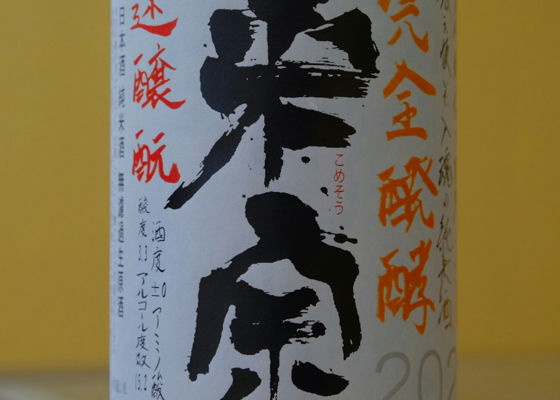 完全醗酵
米宗
こめそう
醸酛
酒度 ±0 アミノ酸
酸度 3.3 アルコール度数 15.2
日本酒 純米酒 無濾過生原酒
202